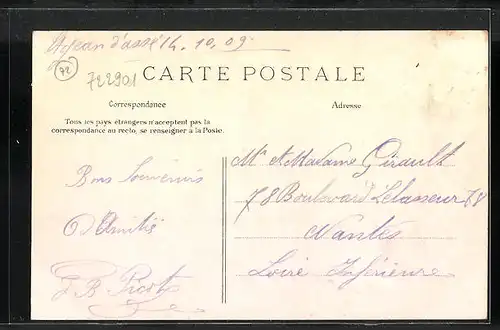 St Jean d'assé 14. 10. 09.
72
722901
CARTE POSTALE
Correspondance
Adresse
Tous les pays étrangers n'acceptent pas la
correspondance au recto, se renseigner à la Poste.
Bons Souvenirs
D'Amitié
Picot
Mr et Madame Girault
78 Boulevard Lelasseur 78
Nantes
Loire Inférieure